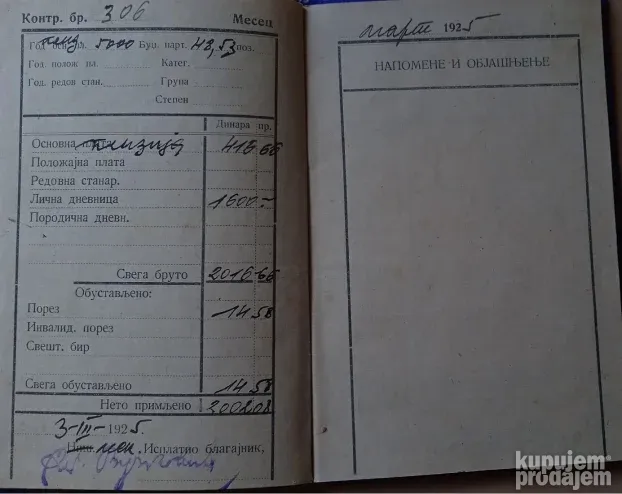 Контр. бр. 306 Месец
Год. осн. пл. 5000 Буџ. парт. 42,53 поз.
Год. полож пл. Катег.
Год. редов стан. Група
Степен
Динара пр.
Основна пензија 416 66
Положајна плата
Редовна станар.
Лична дневница 1600 -
Породична дневн.
Свега бруто 2016 66
Обустављено:
Порез 14 58
Инвалид. порез
Свешт. бир
Свега обустављено 14 58
Нето примљено 2002 08
3-III-1925.
Исплатио благајник,
март 1925
НАПОМЕНЕ И ОБЈАШЊЕЊЕ
kupujem
prodajem